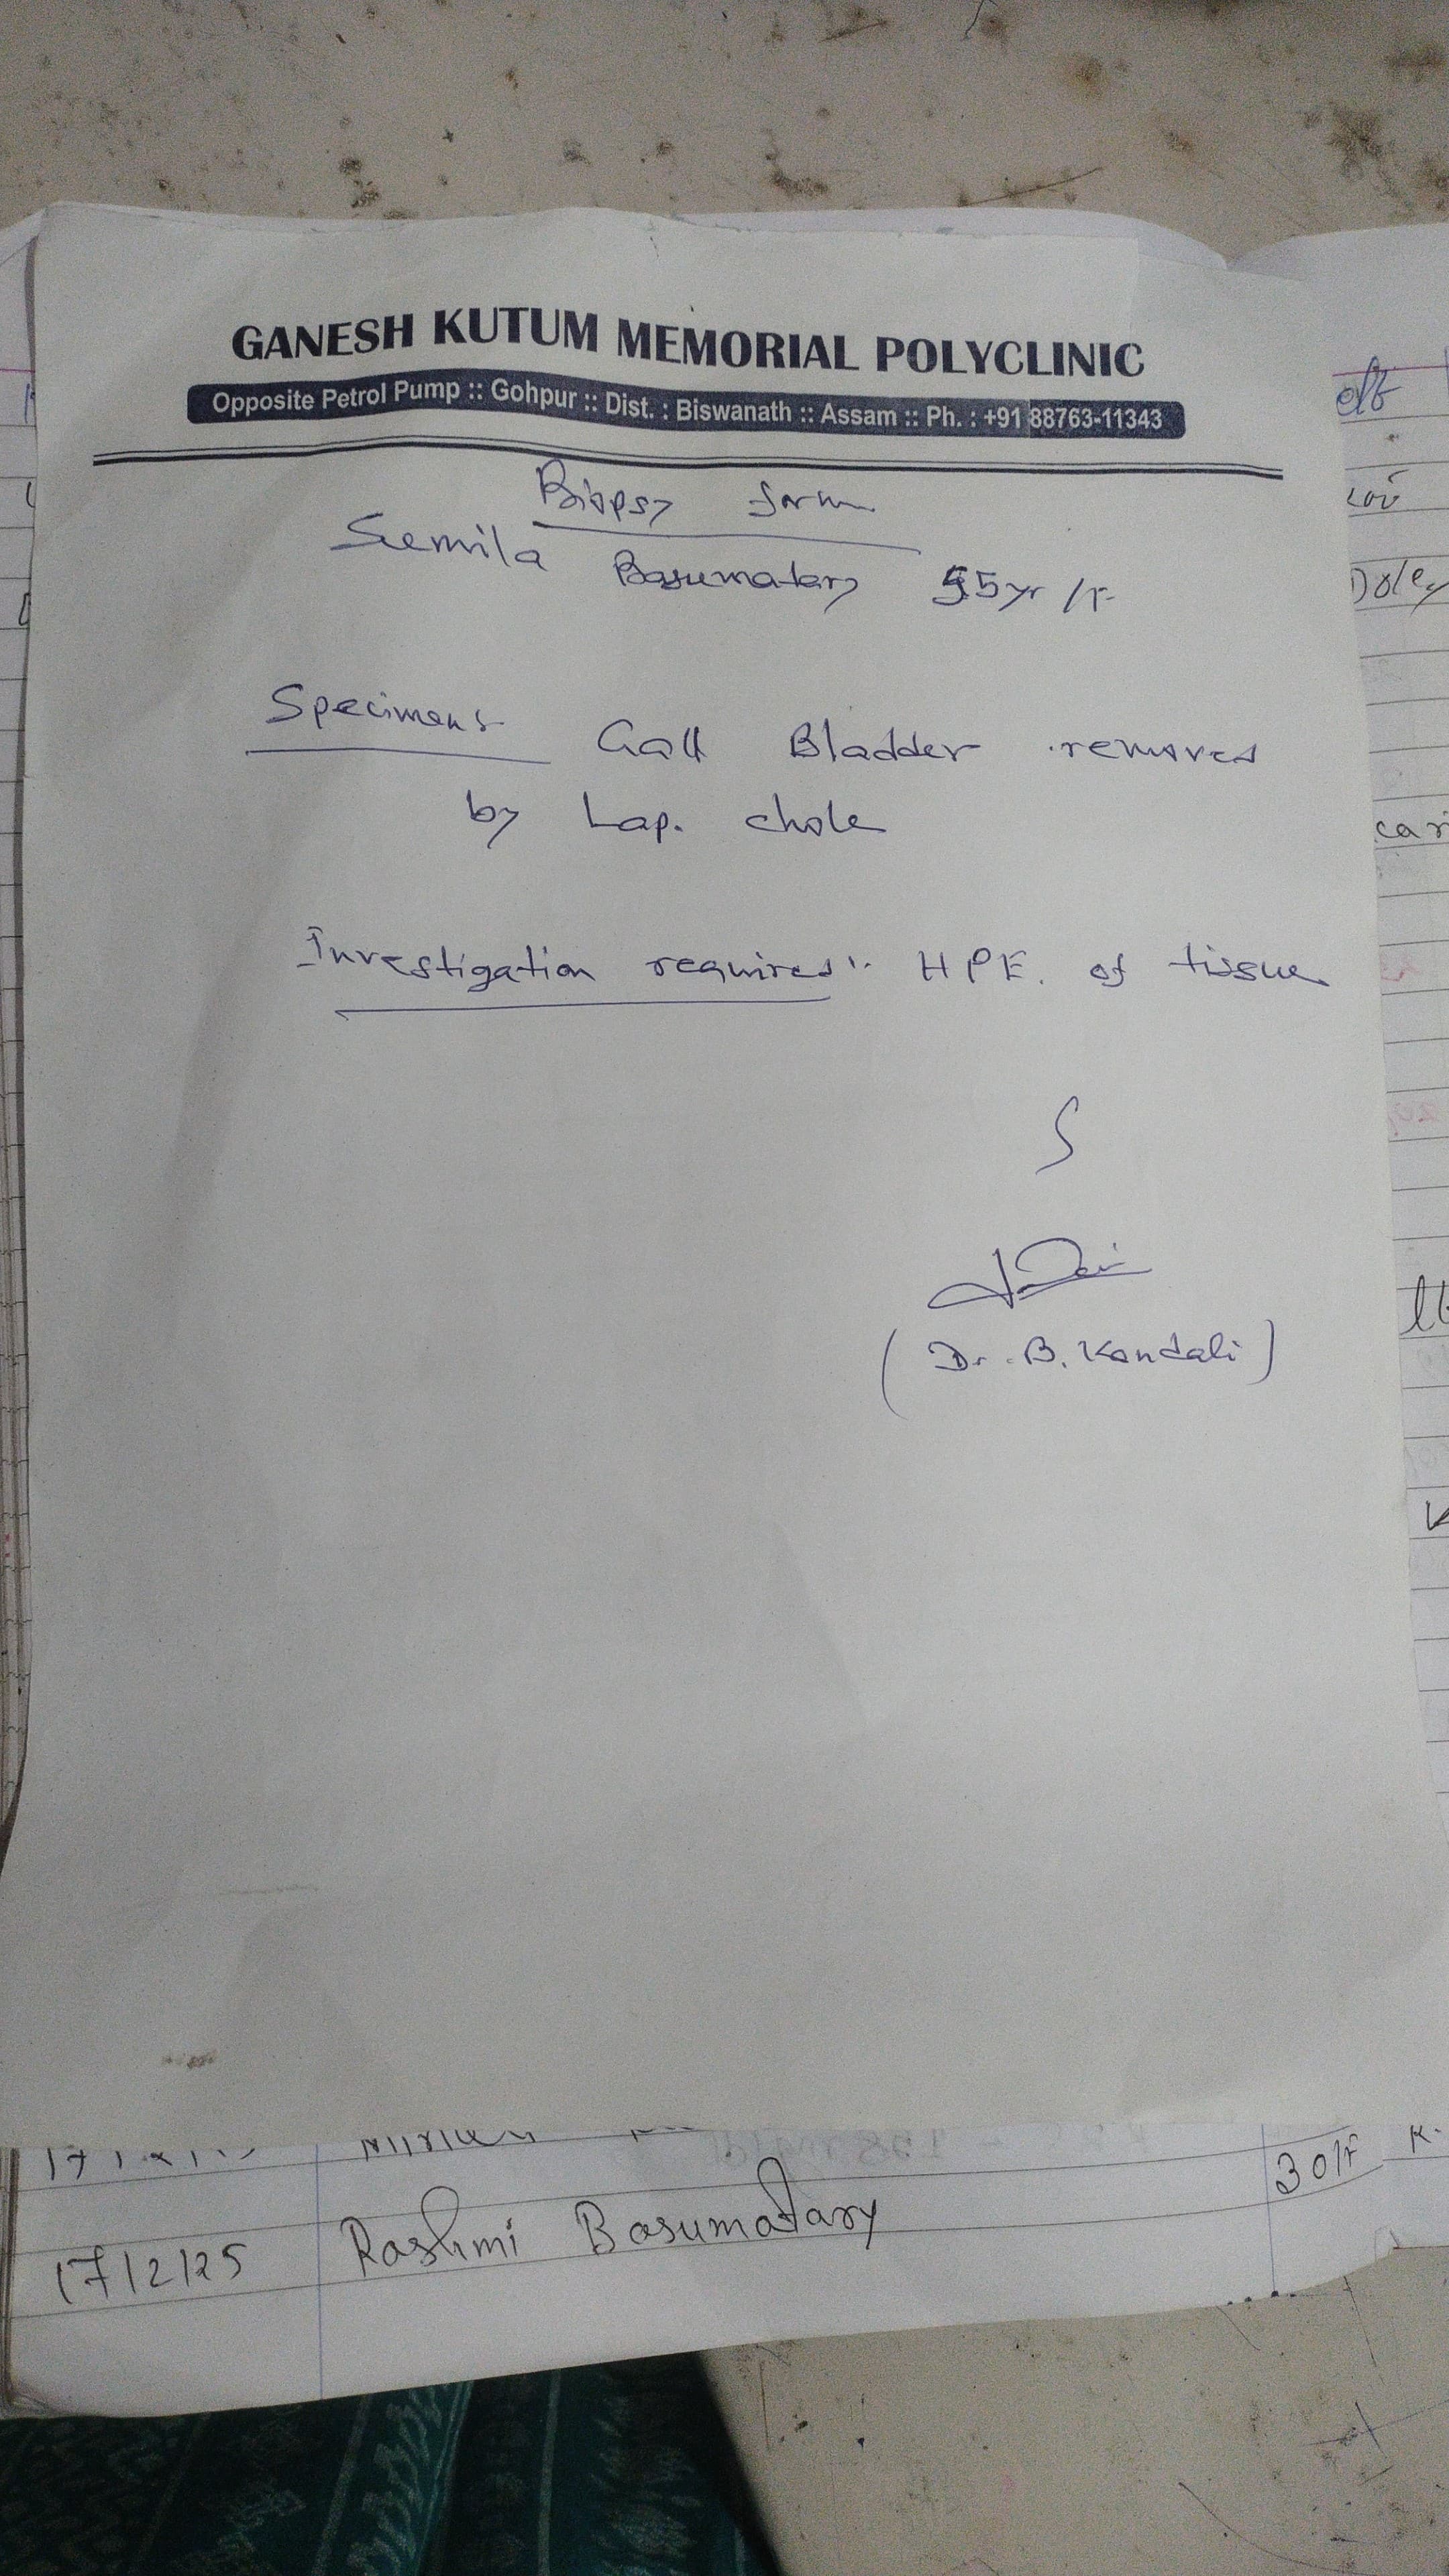 GANESH KUTUM MEMORIAL POLYCLINIC
Opposite Petrol Pump :: Gohpur :: Dist. : Biswanath :: Assam :: Ph. : +91 88763-11343
Biopsy form
Sumila Basumatary 55yr/F
Specimens Gall Bladder removed
by Lap. chole
Investigation required :- HPE. of tissue
(Dr. B. Kondali)
Doley
17/2/25 Rashmi Basumatary 30/F